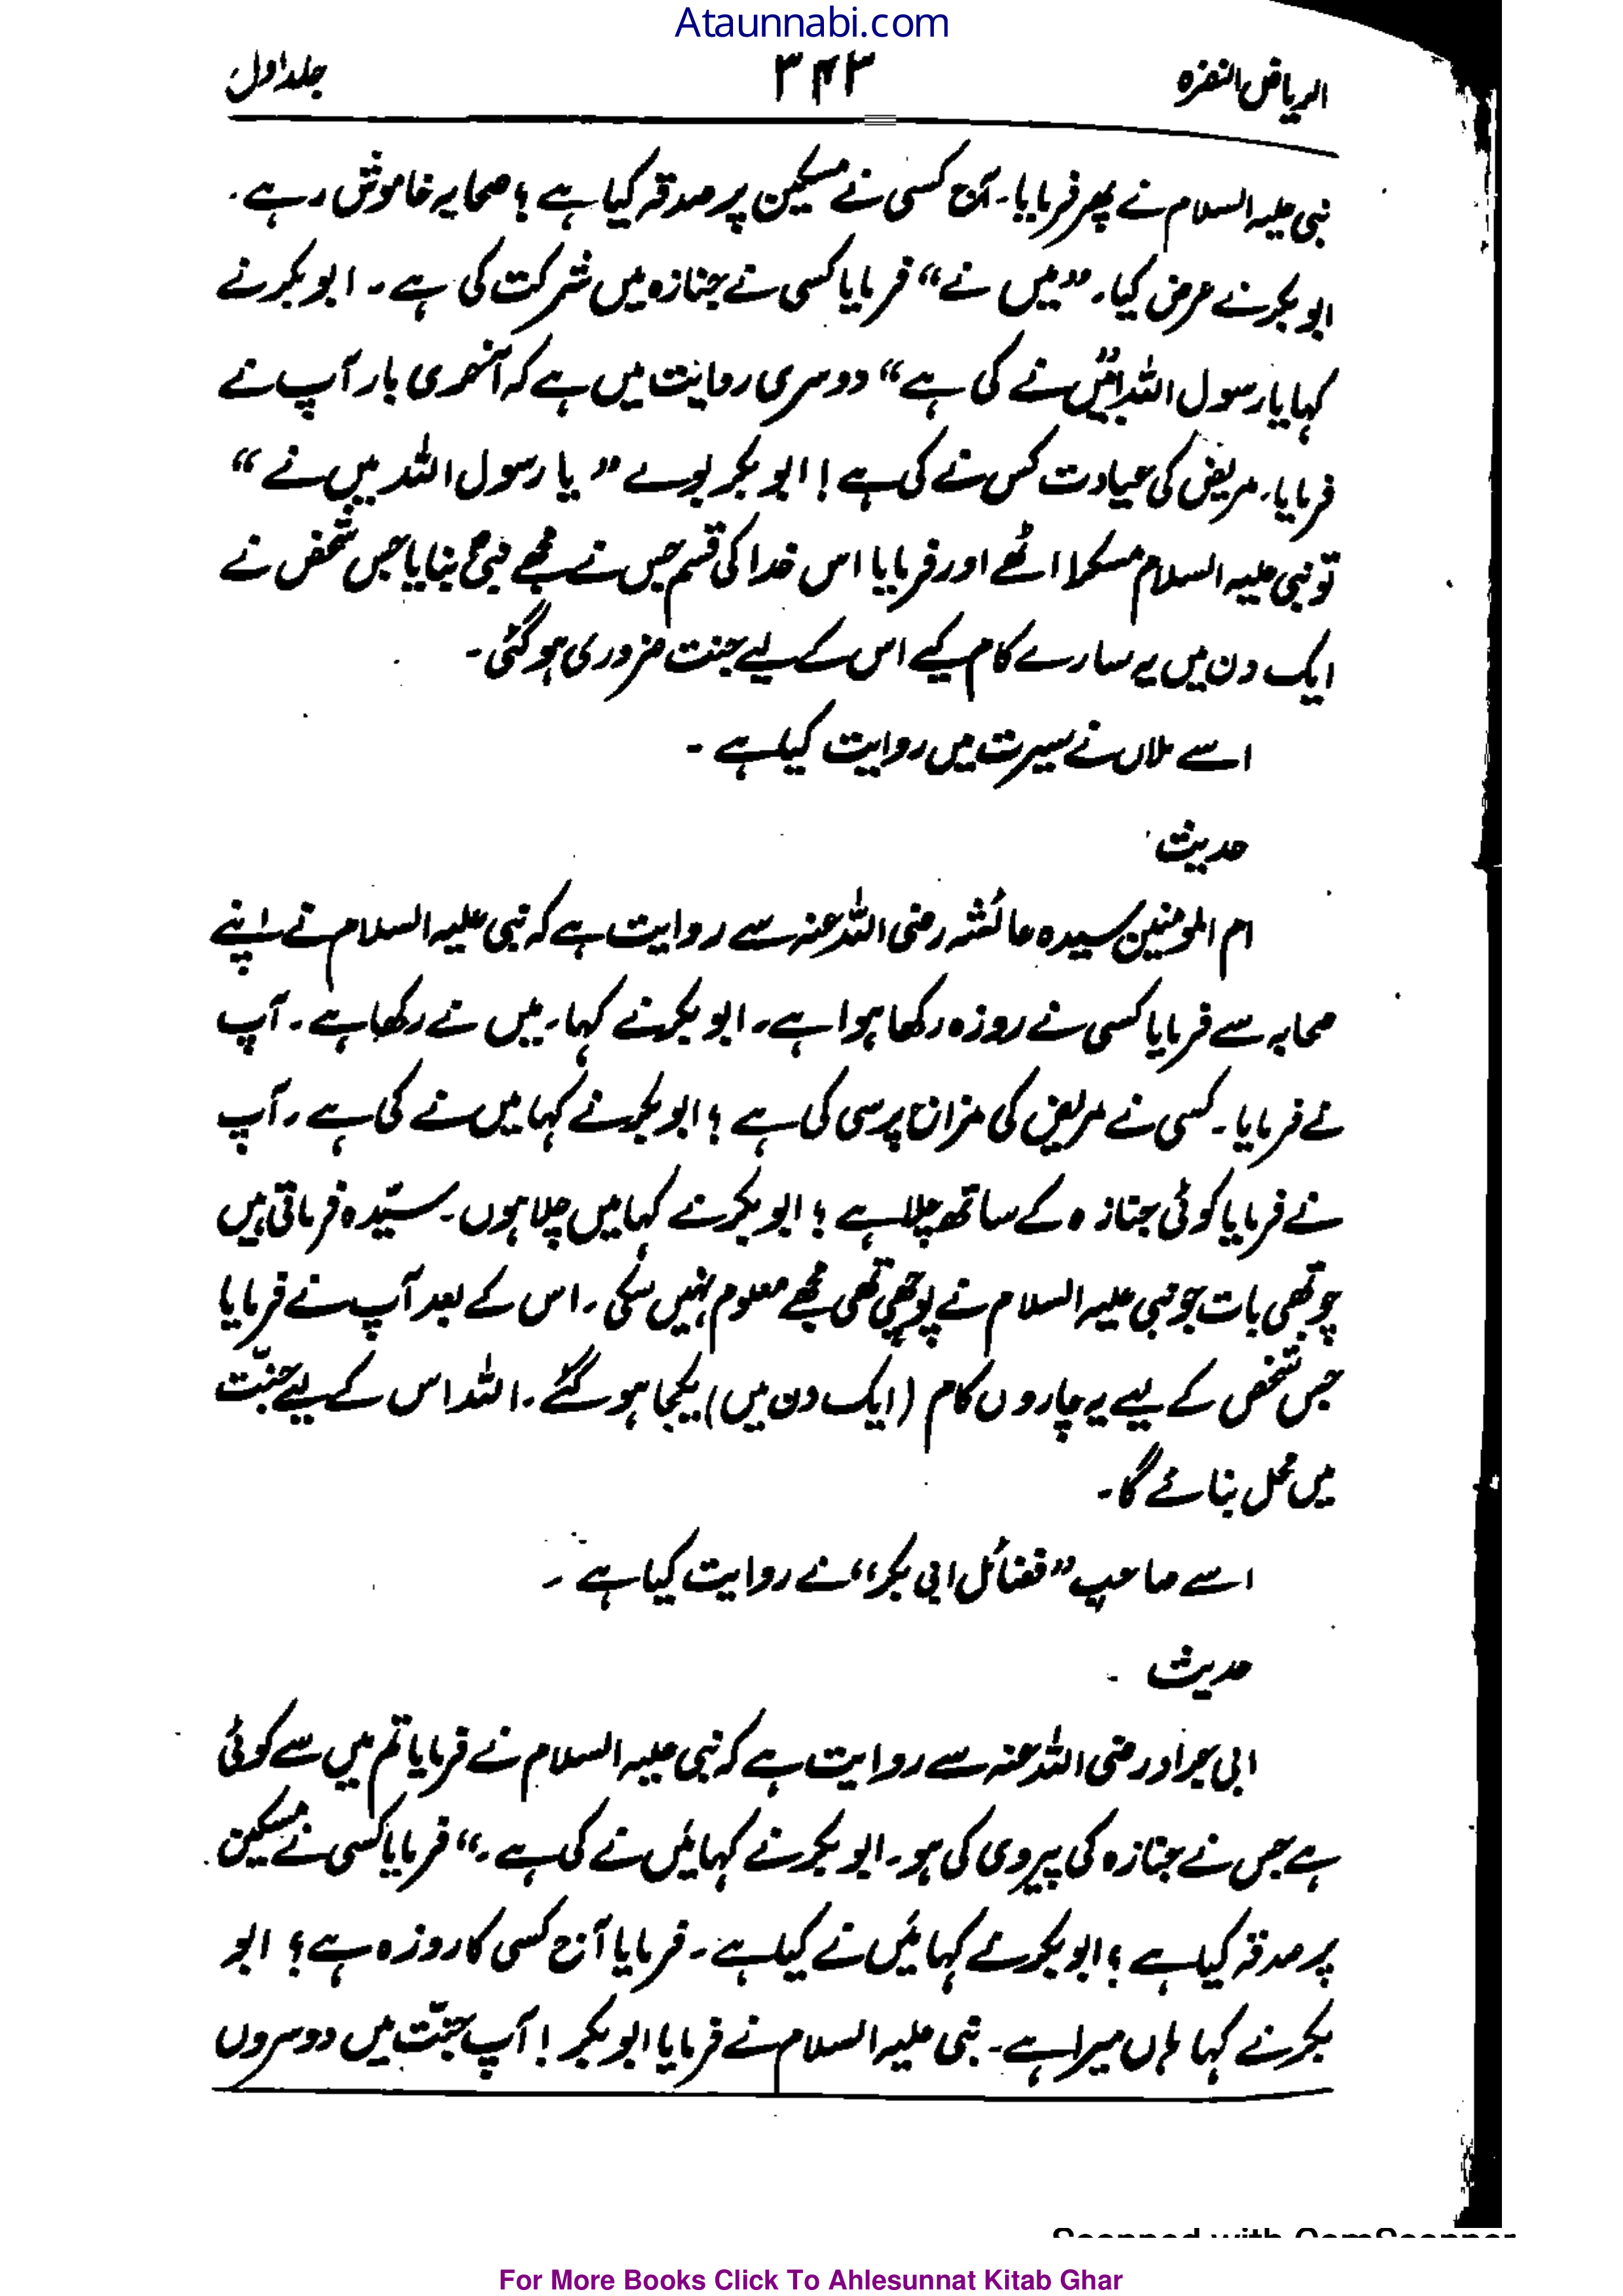 Ataunnabi.com
الریاض النضرہ ۳۴۳ جلد اول
نبی علیہ السلام نے پھر فرمایا۔ آج کسی نے مسکین پر صدقہ کیا ہے؟ صحابہ خاموش رہے۔
ابوبکر نے عرض کیا۔ ”میں نے“ فرمایا کسی نے جنازہ میں شرکت کی ہے۔ ابوبکر نے
کہا یا رسول اللہ! ”میں نے کی ہے“ دوسری روایت میں ہے کہ آخری بار آپ نے
فرمایا۔ مریض کی عیادت کس نے کی ہے! ابوبکر بولے ”یا رسول اللہ میں نے“
تو نبی علیہ السلام مسکرا اٹھے اور فرمایا اس خدا کی قسم جس نے مجھے نبی بنایا جس شخص نے
ایک دن میں یہ سارے کام کیے اس کے لیے جنت ضروری ہوگئی۔
اسے ملاں نے سیرت میں روایت کیا ہے۔
حدیث
ام المومنین سیدہ عائشہ رضی اللہ عنہ سے روایت ہے کہ نبی علیہ السلام نے اپنے
صحابہ سے فرمایا کسی نے روزہ رکھا ہوا ہے۔ ابوبکر نے کہا۔ میں نے رکھا ہے۔ آپ
نے فرمایا۔ کسی نے مریض کی مزاج پرسی کی ہے؟ ابوبکر نے کہا میں نے کی ہے۔ آپ
نے فرمایا کوئی جنازہ کے ساتھ چلا ہے؟ ابوبکر نے کہا میں چلا ہوں۔ سیّدہ فرماتی ہیں
چوتھی بات جو نبی علیہ السلام نے پوچھی تھی مجھے معلوم نہیں سکی۔ اس کے بعد آپ نے فرمایا
جس شخص کے لیے یہ چاروں کام (ایک دن میں) یکجا ہو گئے۔ اللہ اس کے لیے جنّت
میں محل بنائے گا۔
اسے صاحب ”فضائل ابی بکر“ نے روایت کیا ہے۔
حدیث
ابی جراد رضی اللہ عنہ سے روایت ہے کہ نبی علیہ السلام نے فرمایا تم میں سے کوئی
ہے جس نے جنازہ کی پیروی کی ہو۔ ابوبکر نے کہا میں نے کی ہے۔“ فرمایا کسی نے مسکین
پر صدقہ کیا ہے؟ ابوبکر نے کہا میں نے کیا ہے۔ فرمایا آج کسی کا روزہ ہے؟ ابو
بکر نے کہا ہاں میرا ہے۔ نبی علیہ السلام نے فرمایا ابوبکر! آپ جنّت میں دوسروں
Scanned with CamScanner
For More Books Click To Ahlesunnat Kitab Ghar